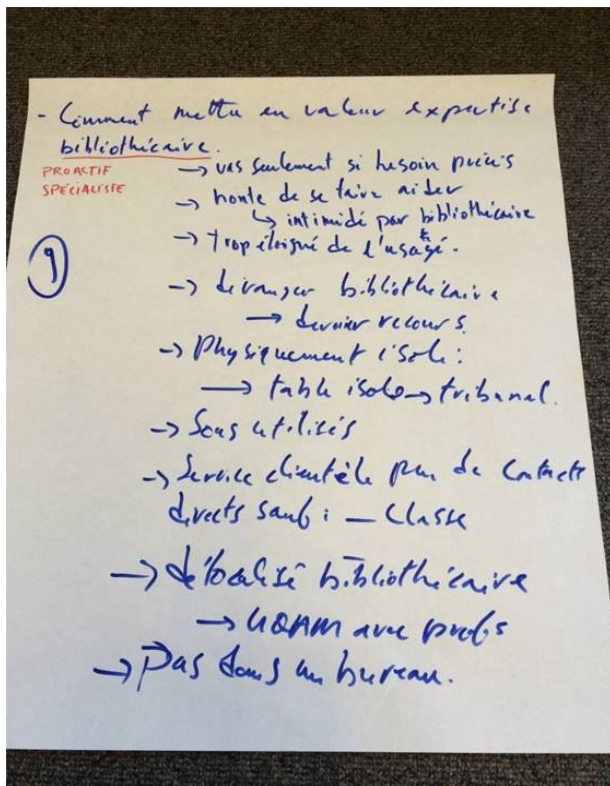 - Comment mettre en valeur expertise
bibliothécaire.
PROACTIF
SPÉCIALISTE
→ vas seulement si besoin précis
→ honte de se faire aider
↳ intimidé par bibliothécaire
→ trop éloigné de l'usagé.
9
→ déranger bibliothécaire
→ dernier recours.
→ Physiquement isolé :
→ table isolé → tribunal.
→ Sous utilisés
→ Service clientèle peu de contacts
directs sauf : — Classe
→ délocalisé bibliothécaire
→ UQAM avec profs
→ Pas dans un bureau.